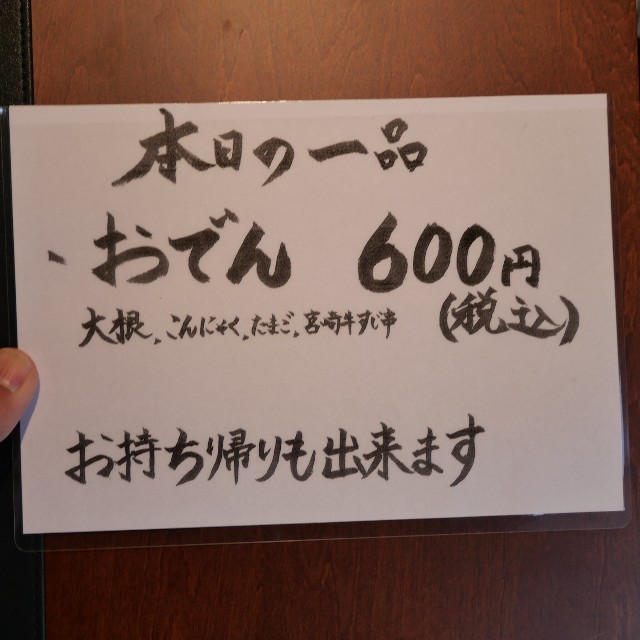 本日の一品
、おでん 600円
大根、こんにゃく、たまご、宮崎牛すじ串 (税込)
お持ち帰りも出来ます